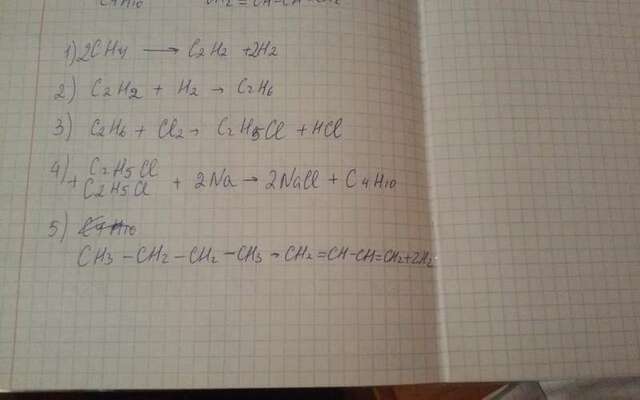 C4H10 CH2=CH-CH=CH2
1) 2CH4 → C2H2 +2H2
2) C2H2 + H2 → C2H6
3) C2H6 + Cl2 → C2H5Cl + HCl
4) + C2H5Cl
C2H5Cl + 2Na → 2NaCl + C4H10
5) C4H10
CH3 - CH2 - CH2 - CH3 → CH2 = CH-CH=CH2+2H2